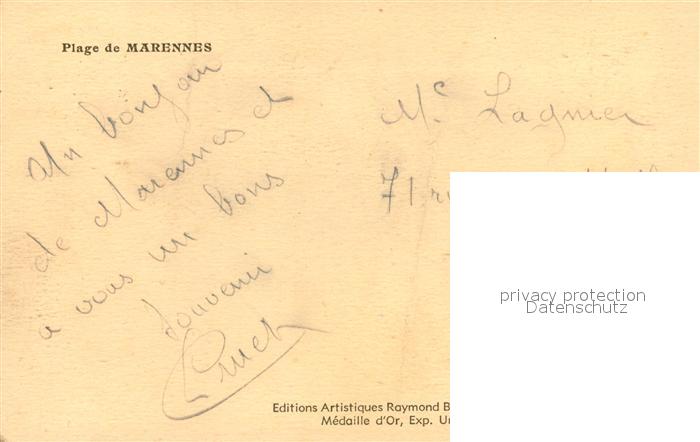 Plage de MARENNES
Un bonjour
de Marennes et
a vous un bons
Souvenir
Mr Lagnier
71 ru
privacy protection
Datenschutz
Editions Artistiques Raymond B
Médaille d'Or, Exp. Un